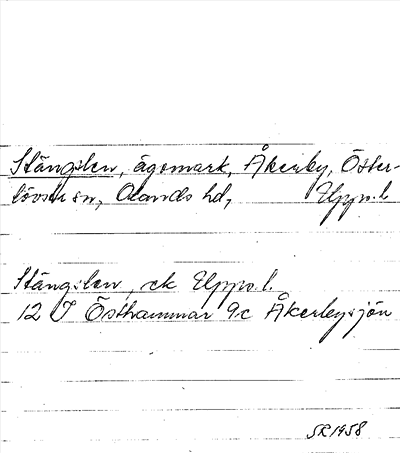 Stängslen, ägomark, Åkerby, Öster-
lövsta sn, Olands hd, Uppo.l.
Stängslen, ek Uppo.l.
12 I Östhammar 9c Åkerbysjön
SR 1958